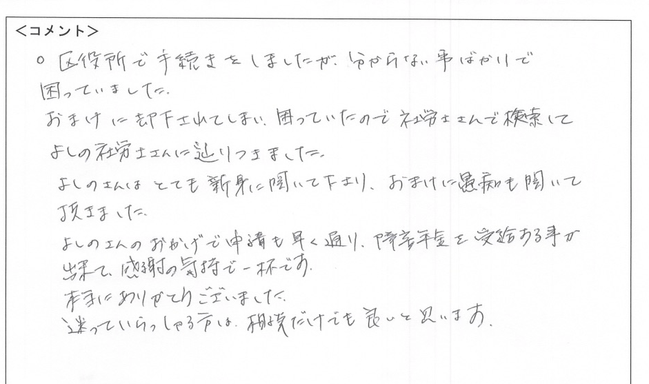 ＜コメント＞
○ 区役所で手続きをしましたが、分からない事ばかりで
困っていました。
おまけに却下されてしまい、困っていたので社労士さんで検索して
よしの社労士さんに辿りつきました。
よしのさんはとても親身に聞いて下さり、おまけに愚痴も聞いて
頂きました。
よしのさんのおかげで申請も早く通り、障害年金を受給する事が
出来て、感謝の気持で一杯です。
本当にありがとうございました。
迷っていらっしゃる方は、相談だけでも良いと思います。